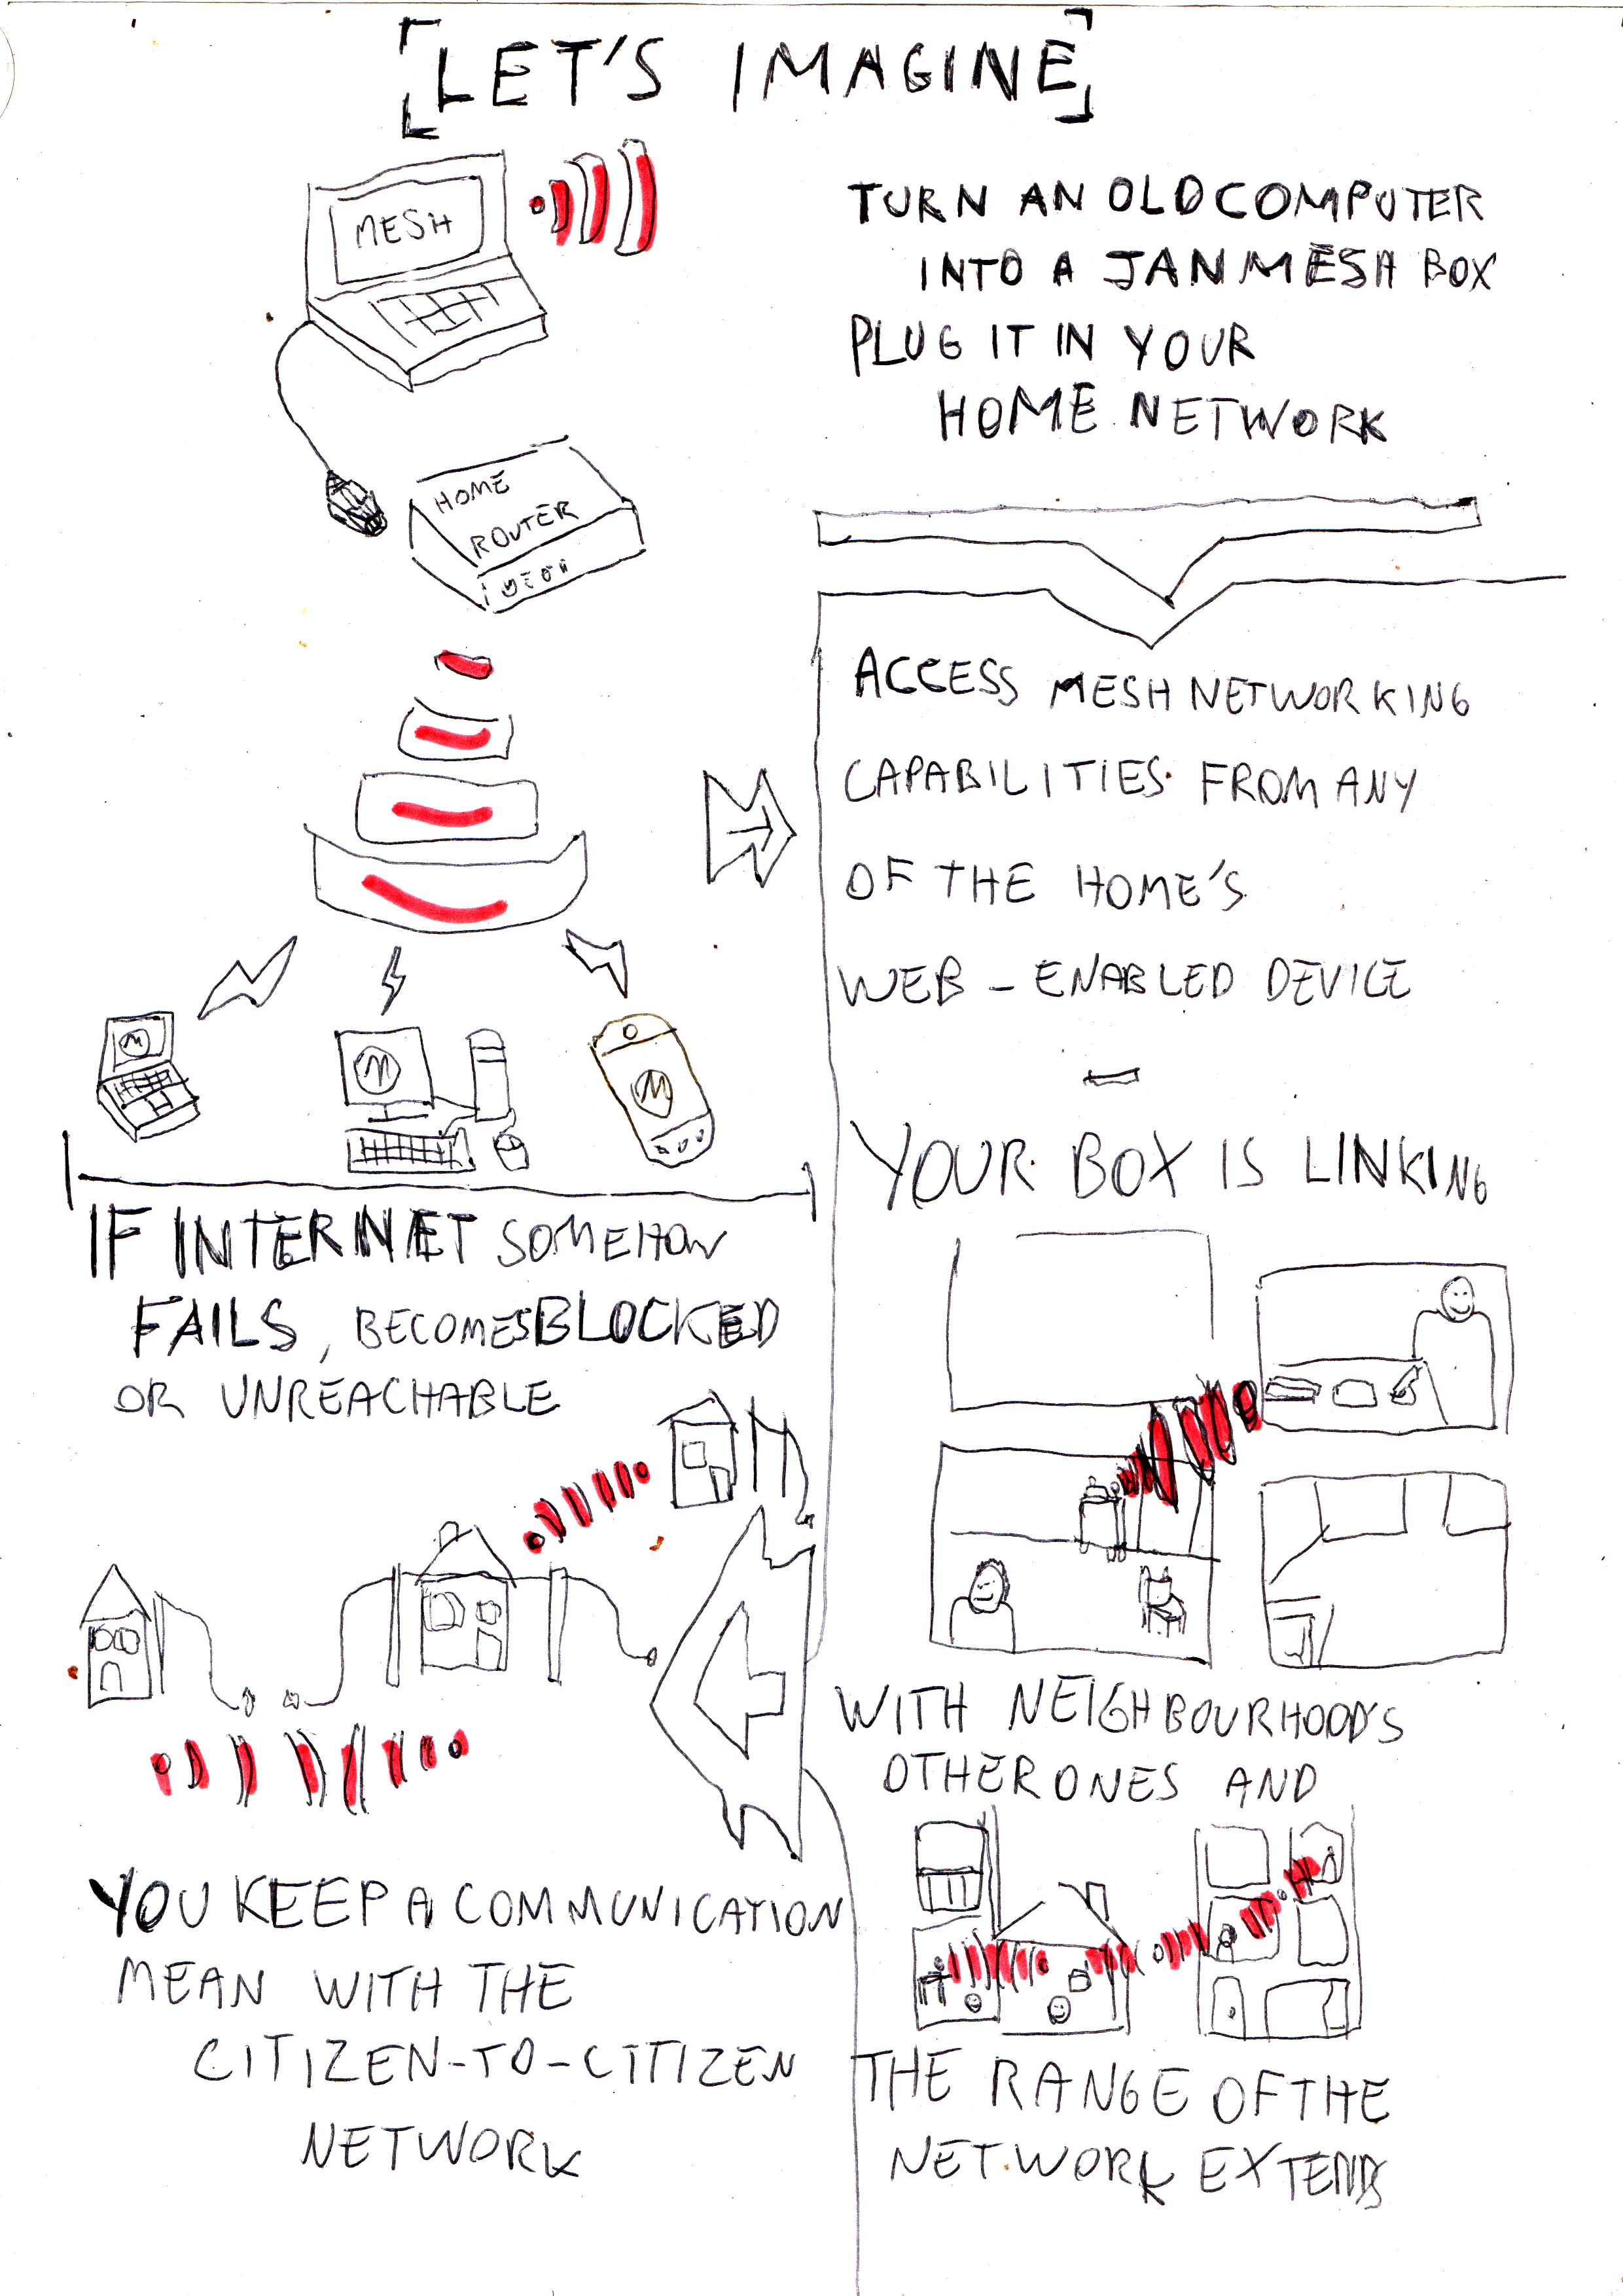 LET'S IMAGINE
MESH
TURN AN OLD COMPUTER
INTO A JANMESH BOX
PLUG IT IN YOUR
HOME NETWORK
HOME
ROUTER
ACCESS MESH NETWORKING
CAPABILITIES FROM ANY
OF THE HOME'S
WEB-ENABLED DEVICE
M
M
M
YOUR BOX IS LINKING
WITH NEIGHBOURHOODS
OTHER ONES AND
THE RANGE OF THE
NETWORK EXTENDS
IF INTERNET SOMEHOW
FAILS, BECOMES BLOCKED
OR UNREACHABLE
YOU KEEP A COMMUNICATION
MEAN WITH THE
CITIZEN-TO-CITIZEN
NETWORK